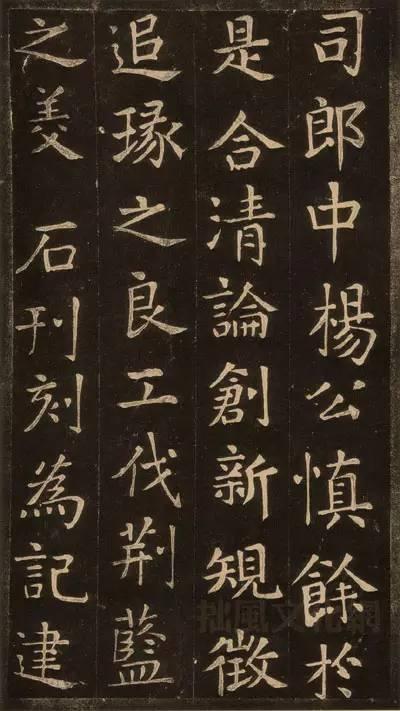 司郎中楊公慎餘於
是合清論創新規徵
追瑑之良工伐荆藍
之美 石刊刻為記建
拙風文化網